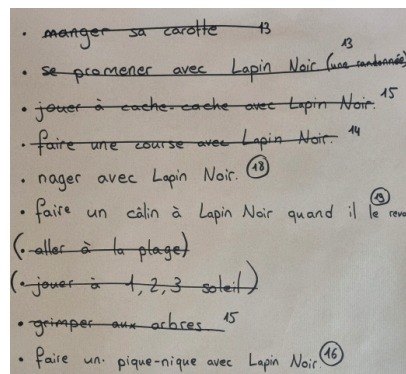 • manger sa carotte 13
13
• se promener avec Lapin Noir (une randonnée)
• jouer à cache-cache avec Lapin Noir. 15
• faire une course avec Lapin Noir. 14
• nager avec Lapin Noir. 18
• faire un câlin à Lapin Noir quand il le revo
(• aller à la plage)
(• jouer à 1, 2, 3 soleil)
• grimper aux arbres 15
• faire un pique-nique avec Lapin Noir. 16